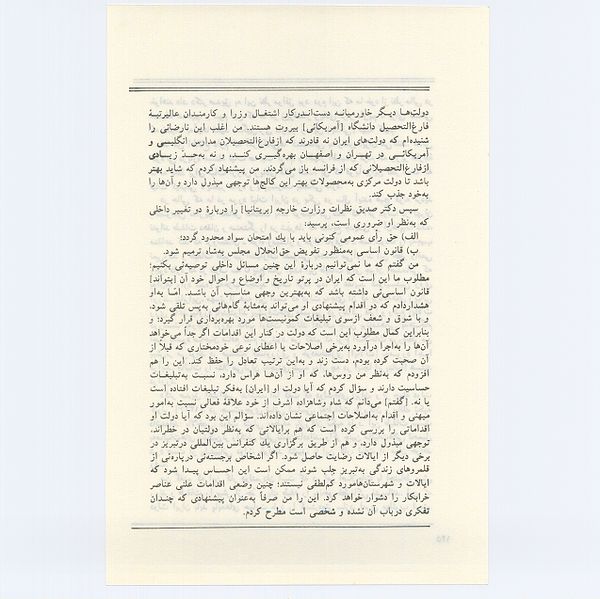 دولت‌ها دیگر خاورمیانه دست‌اندرکار اشتغال وزرا و کارمندان عالیرتبهٔ
فارغ‌التحصیل دانشگاه [آمریکائی] بیروت هستند. من اغلب این نارضائی را
شنیده‌ام که دولت‌های ایران نه قادرند که ازفارغ‌التحصیلان مدارس انگلیسی و
آمریکائی در تهران و اصفهان بهره‌گیری کنند، و نه به‌حد زیادی
ازفارغ‌التحصیلانی که از فرانسه باز می‌گردند. من پیشنهاد کردم که شاید بهتر
باشد تا دولت مرکزی به‌محصولات بهتر این کالج‌ها توجهی مبذول دارد و آن‌ها را
به‌خود جذب کند.
سپس دکتر صدیق نظرات وزارت خارجه [بریتانیا] را دربارهٔ دو تغییر داخلی
که به‌نظر او ضروری است، پرسید:
الف) حق رأی عمومی کنونی باید با یك امتحان سواد محدود گردد؛
ب) قانون اساسی به‌منظور تفویض حق‌انحلال مجلس به‌شاه ترمیم شود.
من گفتم که ما نمی‌توانیم دربارهٔ این چنین مسائل داخلی توصیه‌ئی بکنیم؛
مطلوب ما این است که ایران در پرتو تاریخ و اوضاع و احوال خود آن [بتواند]
قانون اساسی‌ئی داشته باشد که به‌بهترین وجهی مناسب آن باشد. امّا به‌او
هشداردادم که دو اقدام پیشنهادی او می‌تواند به‌مثابهٔ گام‌هائی به‌پس تلقی شود،
و با شوق و شعف ازسوی تبلیغات کمونیست‌ها مورد بهره‌برداری قرار گیرد؛ و
بنابراین کمال مطلوب این است که دولت در کنار این اقدامات اگر جداً می‌خواهد
آن‌ها را به‌اجرا درآورد به‌برخی اصلاحات یا اعطای نوعی خودمختاری که قبلاً از
آن صحبت کرده بودم، دست زند و به‌این ترتیب تعادل را حفظ کند. این را هم
افزودم که به‌نظر من روس‌ها، که او از آن‌ها هراس دارد، نسبت به‌تبلیغات
حساسیت دارند و سؤال کردم که آیا دولت او [ایران] به‌فکر تبلیغات افتاده است
یا نه. [گفتم] می‌دانم که شاه وشاهزاده اشرف از خود علاقهٔ فعالی نسبت به‌امور
میهنی و اقدام به‌اصلاحات اجتماعی نشان داده‌اند. سؤالم این بود که آیا دولت او
اقداماتی را بررسی کرده است که هم برایالاتی که به‌نظر دولتیان در خطراند،
توجهی مبذول دارد، و هم از طریق برگزاری یك کنفرانس بین‌المللی درتبریز در
برخی دیگر از ایالات رضایت حاصل شود. اگر اشخاص برجسته‌ئی درباره‌ئی از
قلمروهای زندگی به‌تبریز جلب شوند ممکن است این احساس پیدا شود که
ایالات و شهرستان‌هامورد کم‌لطفی نیستند؛ چنین وضعی اقدامات علنی عناصر
خرابکار را دشوار خواهد کرد. این را من صرفاً به‌عنوان پیشنهادی که چندان
تفکری درباب آن نشده و شخصی است مطرح کردم.